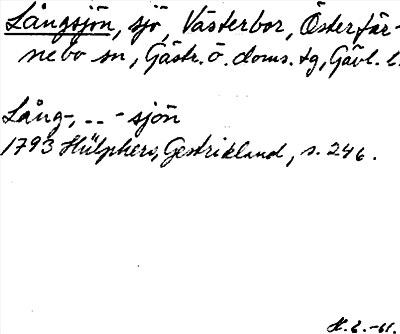 Långsjön, sjö, Västerbor, Österfär-
nebo sn, Gästr. ö. doms. tg, Gävl. l.
Lång-, .. - sjön
1793 Hülphers, Gestrikland, s. 246.
H. L. -61.